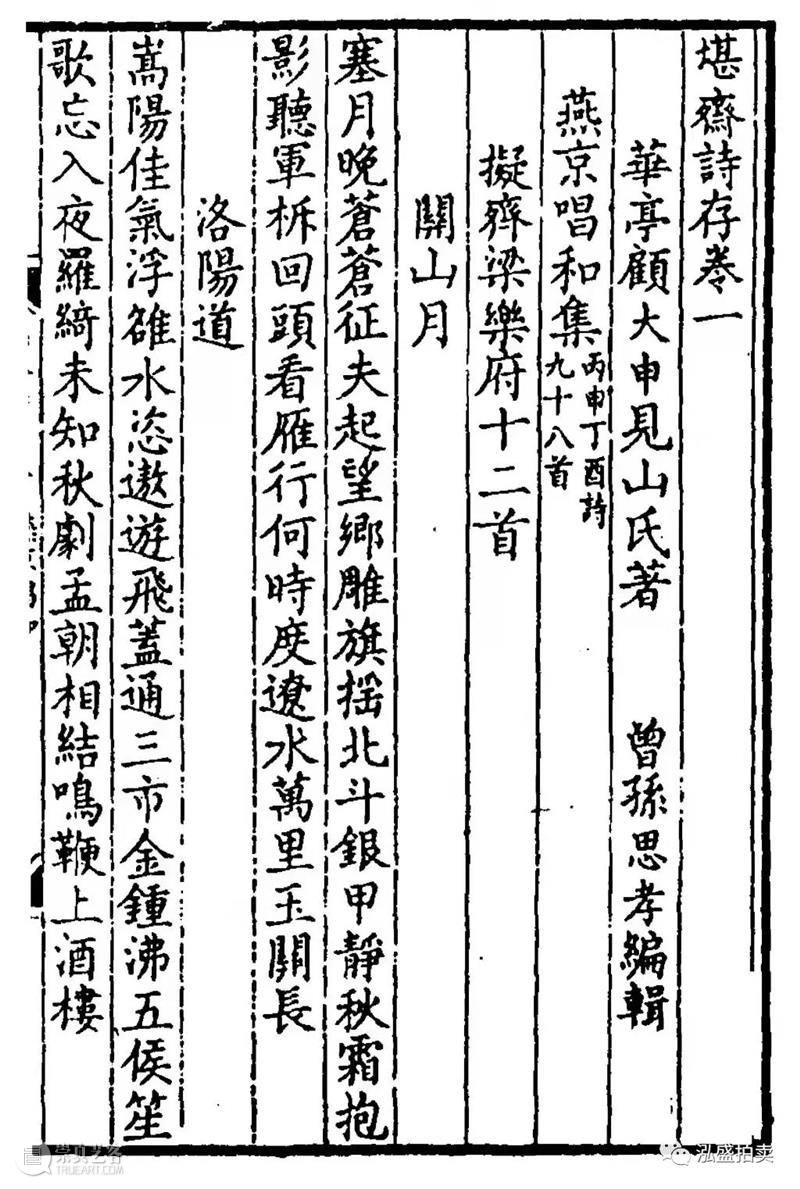 堪齋詩存卷一
華亭顧大申見山氏著　曾孫思孝編輯
燕京唱和集丙申丁酉詩九十八首
擬齊梁樂府十二首
關山月
塞月晚蒼蒼征夫起望鄉雕旗揺北斗銀甲靜秋霜抱
影聽軍柝回頭看雁行何時度遼水萬里玉關長
洛陽道
嵩陽佳氣浮雒水恣遨遊飛蓋通三市金鍾沸五侯笙
歌忘入夜羅綺未知秋劇孟朝相結鳴鞭上酒樓
崇真艺客
TRUEART.COM
泓盛拍卖